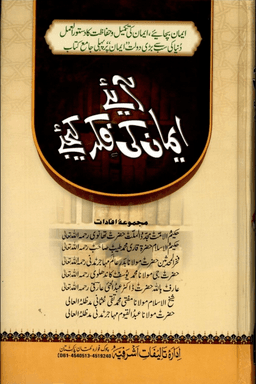 ایمان بچائیے، ایمان کی تکمیل و حفاظت کا دستور العمل
دنیا کی سب سے بڑی دولت "ایمان" پر پہلی جامع کتاب
آئیے
ایمان کی فکر کیجئے
مجموعہ افادات
حکیم الامت مجدد الملت حضرت تھانوی رحمہ اللہ تعالیٰ
حکیم الاسلام حضرت قاری محمد طیب صاحب رحمہ اللہ تعالیٰ
فخر المحدثین حضرت مولانا بدر عالم مہاجر مدنی رحمہ اللہ تعالیٰ
حضرت جی مولانا محمد یوسف کاندھلوی رحمہ اللہ تعالیٰ
عارف باللہ حضرت ڈاکٹر عبدالحی عارفی رحمہ اللہ تعالیٰ
شیخ الاسلام مولانا مفتی محمد تقی عثمانی مدظلہ العالی
حضرت مولانا عبدالقیوم مہاجر مدنی مدظلہ العالی
ادارہ تالیفات اشرفیہ
چوک فوارہ ملتان پاکستان